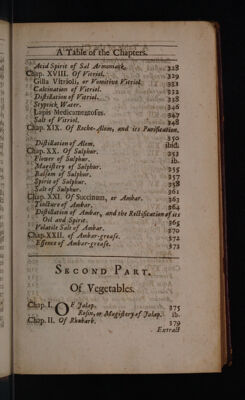 A Table of the Chapters.
Acid Spirit of Sal Armoniack. 328
Chap. XVIII. Of Vitriol. 329
Gilla Vitrioli, or Vomitive Vitriol. 331
Calcination of Vitriol. 332
Distillation of Vitriol. 338
Styptick Water. 346
Lapis Medicamentosus. 347
Salt of Vitriol. 348
Chap. XIX. Of Roche-Allom, and its Purification.
350
Distillation of Alom. ibid.
Chap. XX. Of Sulphur. 353
Flower of Sulphur. ib.
Magistery of Sulphur. 355
Balsom of Sulphur. 357
Spirit of Sulphur. 358
Salt of Sulphur. 361
Chap. XXI. Of Succinum, or Ambar. 363
Tincture of Ambar. 364
Distillation of Ambar, and the Rectification of its
Oil and Spirit. 365
Volatile Salt of Ambar. 370
Chap. XXII. of Ambar-grease. 372
Essence of Ambar-grease. 373
SECOND PART.
Of Vegetables.
Chap. I. OF Jalap. 375
Rosin, or Magistery of Jalap. ib.
Chap. II. Of Rhubarb. 379
Extract